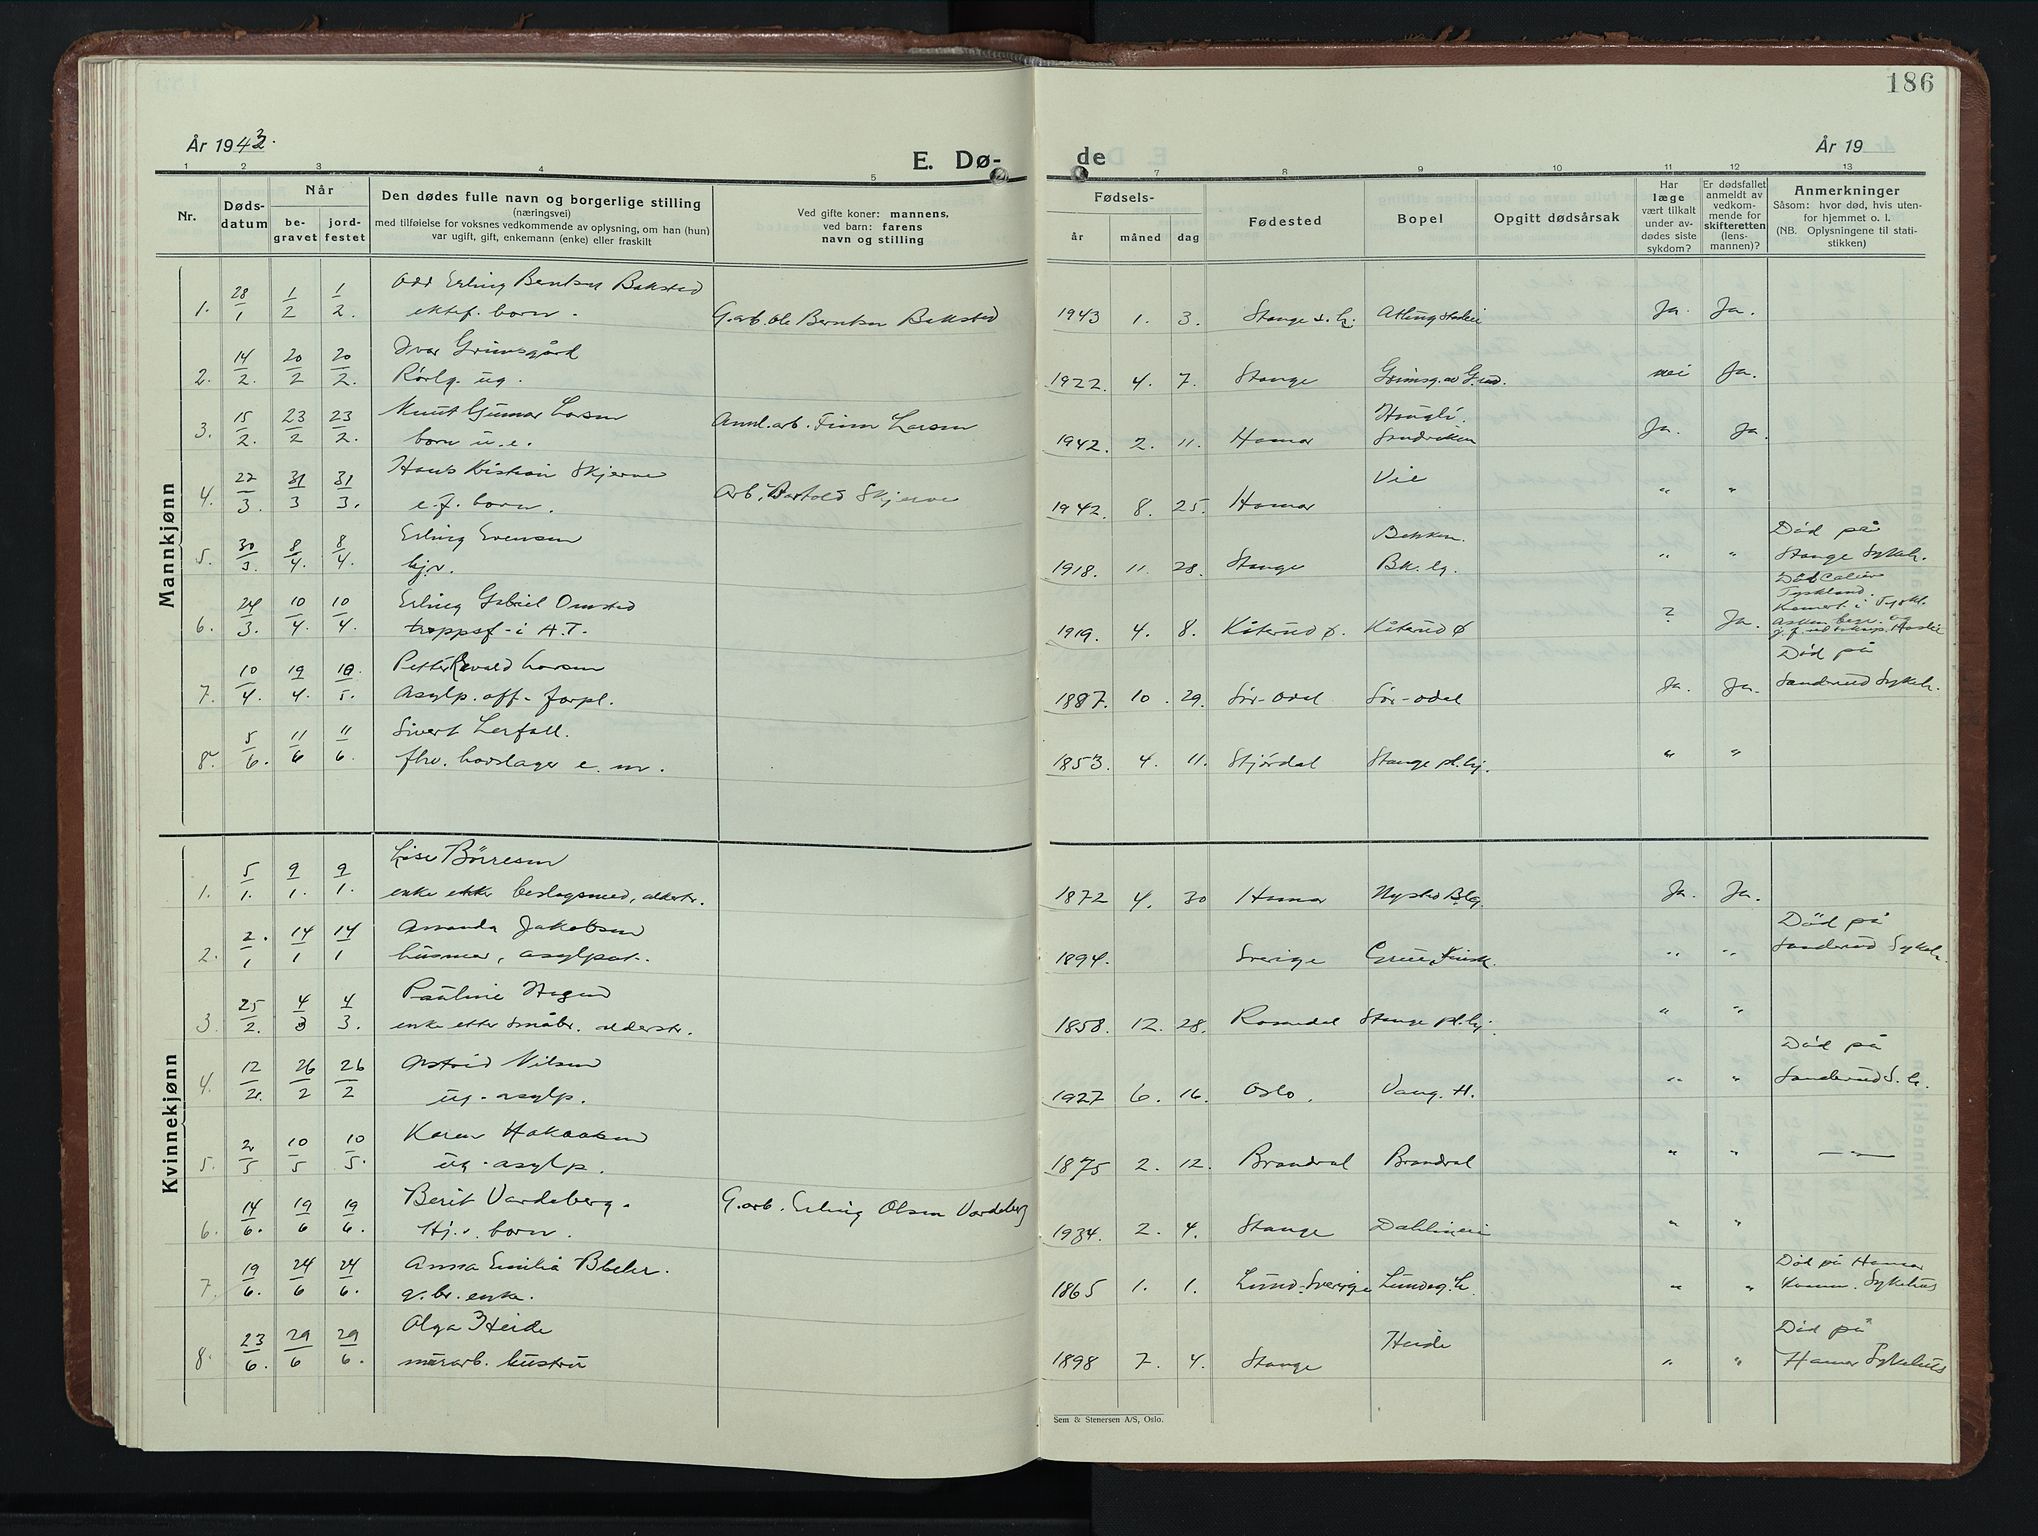 186
År 1943.
E. Dø-
de
År 19
1 2 3 4 5 7 8 9 10 11 12 13
Nr.
Døds-
datum
Når
be-
gravet
jord-
festet
Den dødes fulle navn og borgerlige stilling
(næringsvei)
med tilføielse for voksnes vedkommende av oplysning, om han (hun)
var ugift, gift, enkemann (enke) eller fraskilt
Ved gifte koner: mannens,
ved barn: farens
navn og stilling
Fødsels-
år
måned
dag
Fødested
Bopel
Opgitt dødsårsak
Har
læge
vært tilkalt
under av-
dødes siste
sykdom?
Er dødsfallet
anmeldt av
vedkom-
mende for
skifteretten
(lens-
mannen)?
Anmerkninger
Såsom: hvor død, hvis uten-
for hjemmet o. l.
(NB. Oplysningene til stati-
stikken)
Mannkjønn
Odd Erling Berntsen Bekstad
1. 28/1 1/2 1/2. ektef. born. G.arb. Ole Berntsen Bekstad 1943 1. 3. Stange Ja. Ja.
Ivar Grimsgård
2. 14/2. 20/2 20/2. ug. 1922. 4. 7. Stange nei Ja.
Knut Gunnar Larsen
3. 15/2. 23/2 23/2. born u.e. Annl.arb. Finn Larsen 1942. 2. 11. Hamar Sandviken Ja. Ja.
Hans Kristian Skjerve
Vie
4. 22/3. 31/3 31/3. e.f. born. Arb. Bertold Skjerve 1942. 8. 25. Hamar " "
Erling Evensen
Bekken.
Død på
5. 30/3. 8/4. 8/4. hjv. 1918. 11. 28. Stange Bk.lg. " " Stange Sykeh.
Erling Gabriel Omsted
Tyskland.
6. 24/3. 10/4. 10/4. troppsf. i A.T. 1919. 4. 8. Kåterud ø. Kåterud ø ? Ja.
Petter Larsen
Død på
7. 10/4. 19/4. 10/5. Asylp. off. forpl. 1887. 10. 29. Sør-Odal Sør-Odal Ja. Ja. Sanderud Sykeh.
Sivert Lerfall.
8. 5/6. 11/6 11/6. fhv. hovslager e.m. 1853. 4. 11. Stjørdal Stange pl.hj. " "
Kvinnekjønn
Lise Børresen
1. 5/1. 9/1. 9/1. enke etter beslagsmed, alderstr. 1872 4. 30 Hamar Ja. Ja.
Amanda Jakobsen
Død på
2. 2/1 14/1 14/1 husmor, asylpat. 1894. Sverige Grue Finsk. " " Sanderud Sykeh.
Pauline
3. 25/2. 4/3 4/3. enke etter småbr. alderstr. 1858. 12. 28. Romedal Stange pl.hj. " "
Astrid Nilsen
Død på
4. 12/2. 26/2 26/2 ug. asylp. 1927 6. 16. Oslo. Vang. H. " " Sanderud S.h.
Karen Hakonsen
5. 2/5 10/5 10/5. ug. asylp. 1875 2. 12. Brandval Brandval " " — " —
Berit Vardeberg.
6. 14/6. 19/6 19/6. Hj.v. born. G.arb. Erling Olsen Vardeberg 1934. 2. 4. Stange " "
Anna Emilia
Død på Hamar
7. 19/6. 24/6 24/6. g.br. enke. 1865 1. 1. Lund-Sverige " " Komm. Sykehus
Olga Heide
Heide
Død på
8. 23/6. 29/6 29/6. murarb. hustru 1898 7. 4. Stange " " Hamar Sykehus
Sem & Stenersen A/S, Oslo.